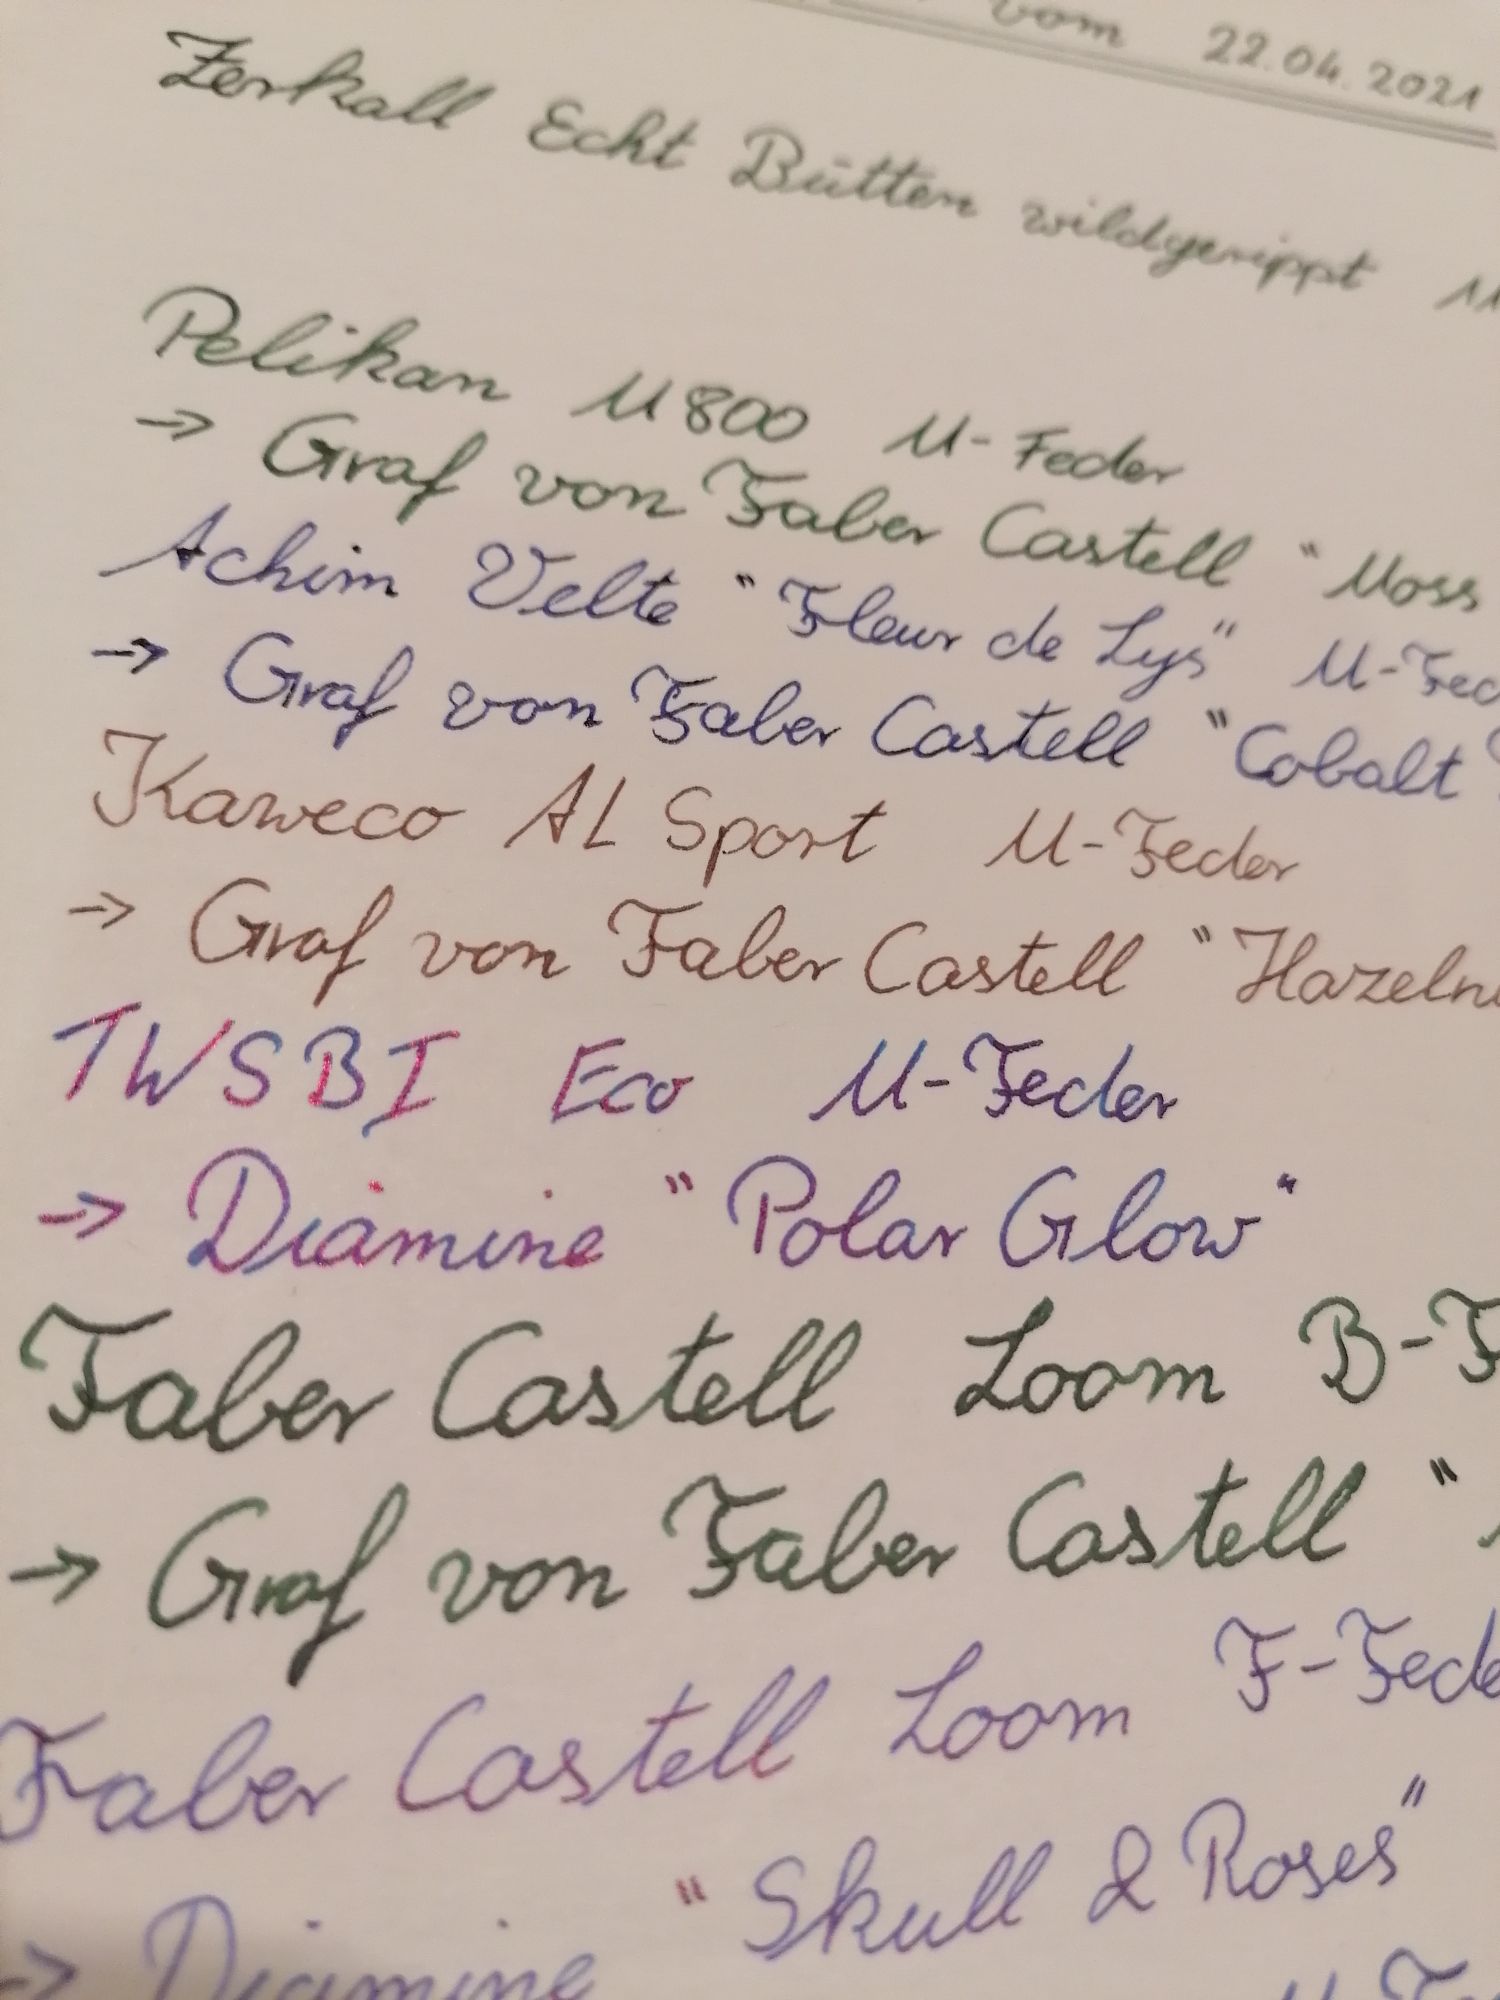 vom 22.04.2021
Zerkall Echt Bütten wildgerippt
Pelikan M800 M-Feder
→ Graf von Faber Castell "Moss
Achim Velte "Fleur de Lys" M-Fed
→ Graf von Faber Castell "Cobalt
Kaweco AL Sport M-Feder
→ Graf von Faber Castell "Hazeln
TWSBI Eco M-Feder
→ Diamine "Polar Glow"
Faber Castell Loom B-F
→ Graf von Faber Castell "
Faber Castell Loom F-Fede
→ Diamine "Skull & Roses"